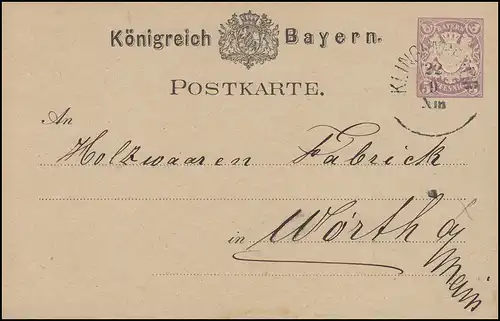 Königreich Bayern.
POSTKARTE.
An
Holzwaaren Fabrick
in Wörth a/
Main